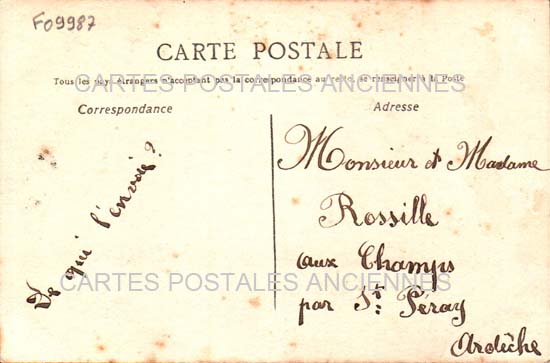 F09987
CARTE POSTALE
Tous les pays étrangers n'acceptant pas la correspondance au recto, se renseigner à la Poste
CARTES POSTALES ANCIENNES
Correspondance
Adresse
De qui l'envoi ?
Monsieur et Madame
Rossille
aux Champs
CARTES POSTALES ANCIENNES
par St. Péray
Ardèche